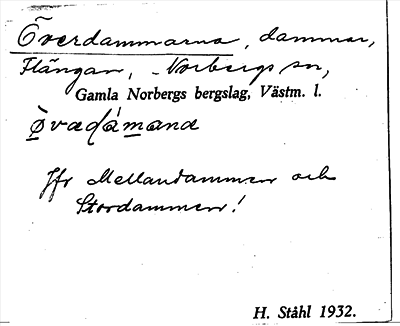 Överdammarna, dammar,
Flängan, Norbergs sn,
Gamla Norbergs bergslag, Västm. l.
Jfr Mellandammen och
Stordammen!
H. Ståhl 1932.